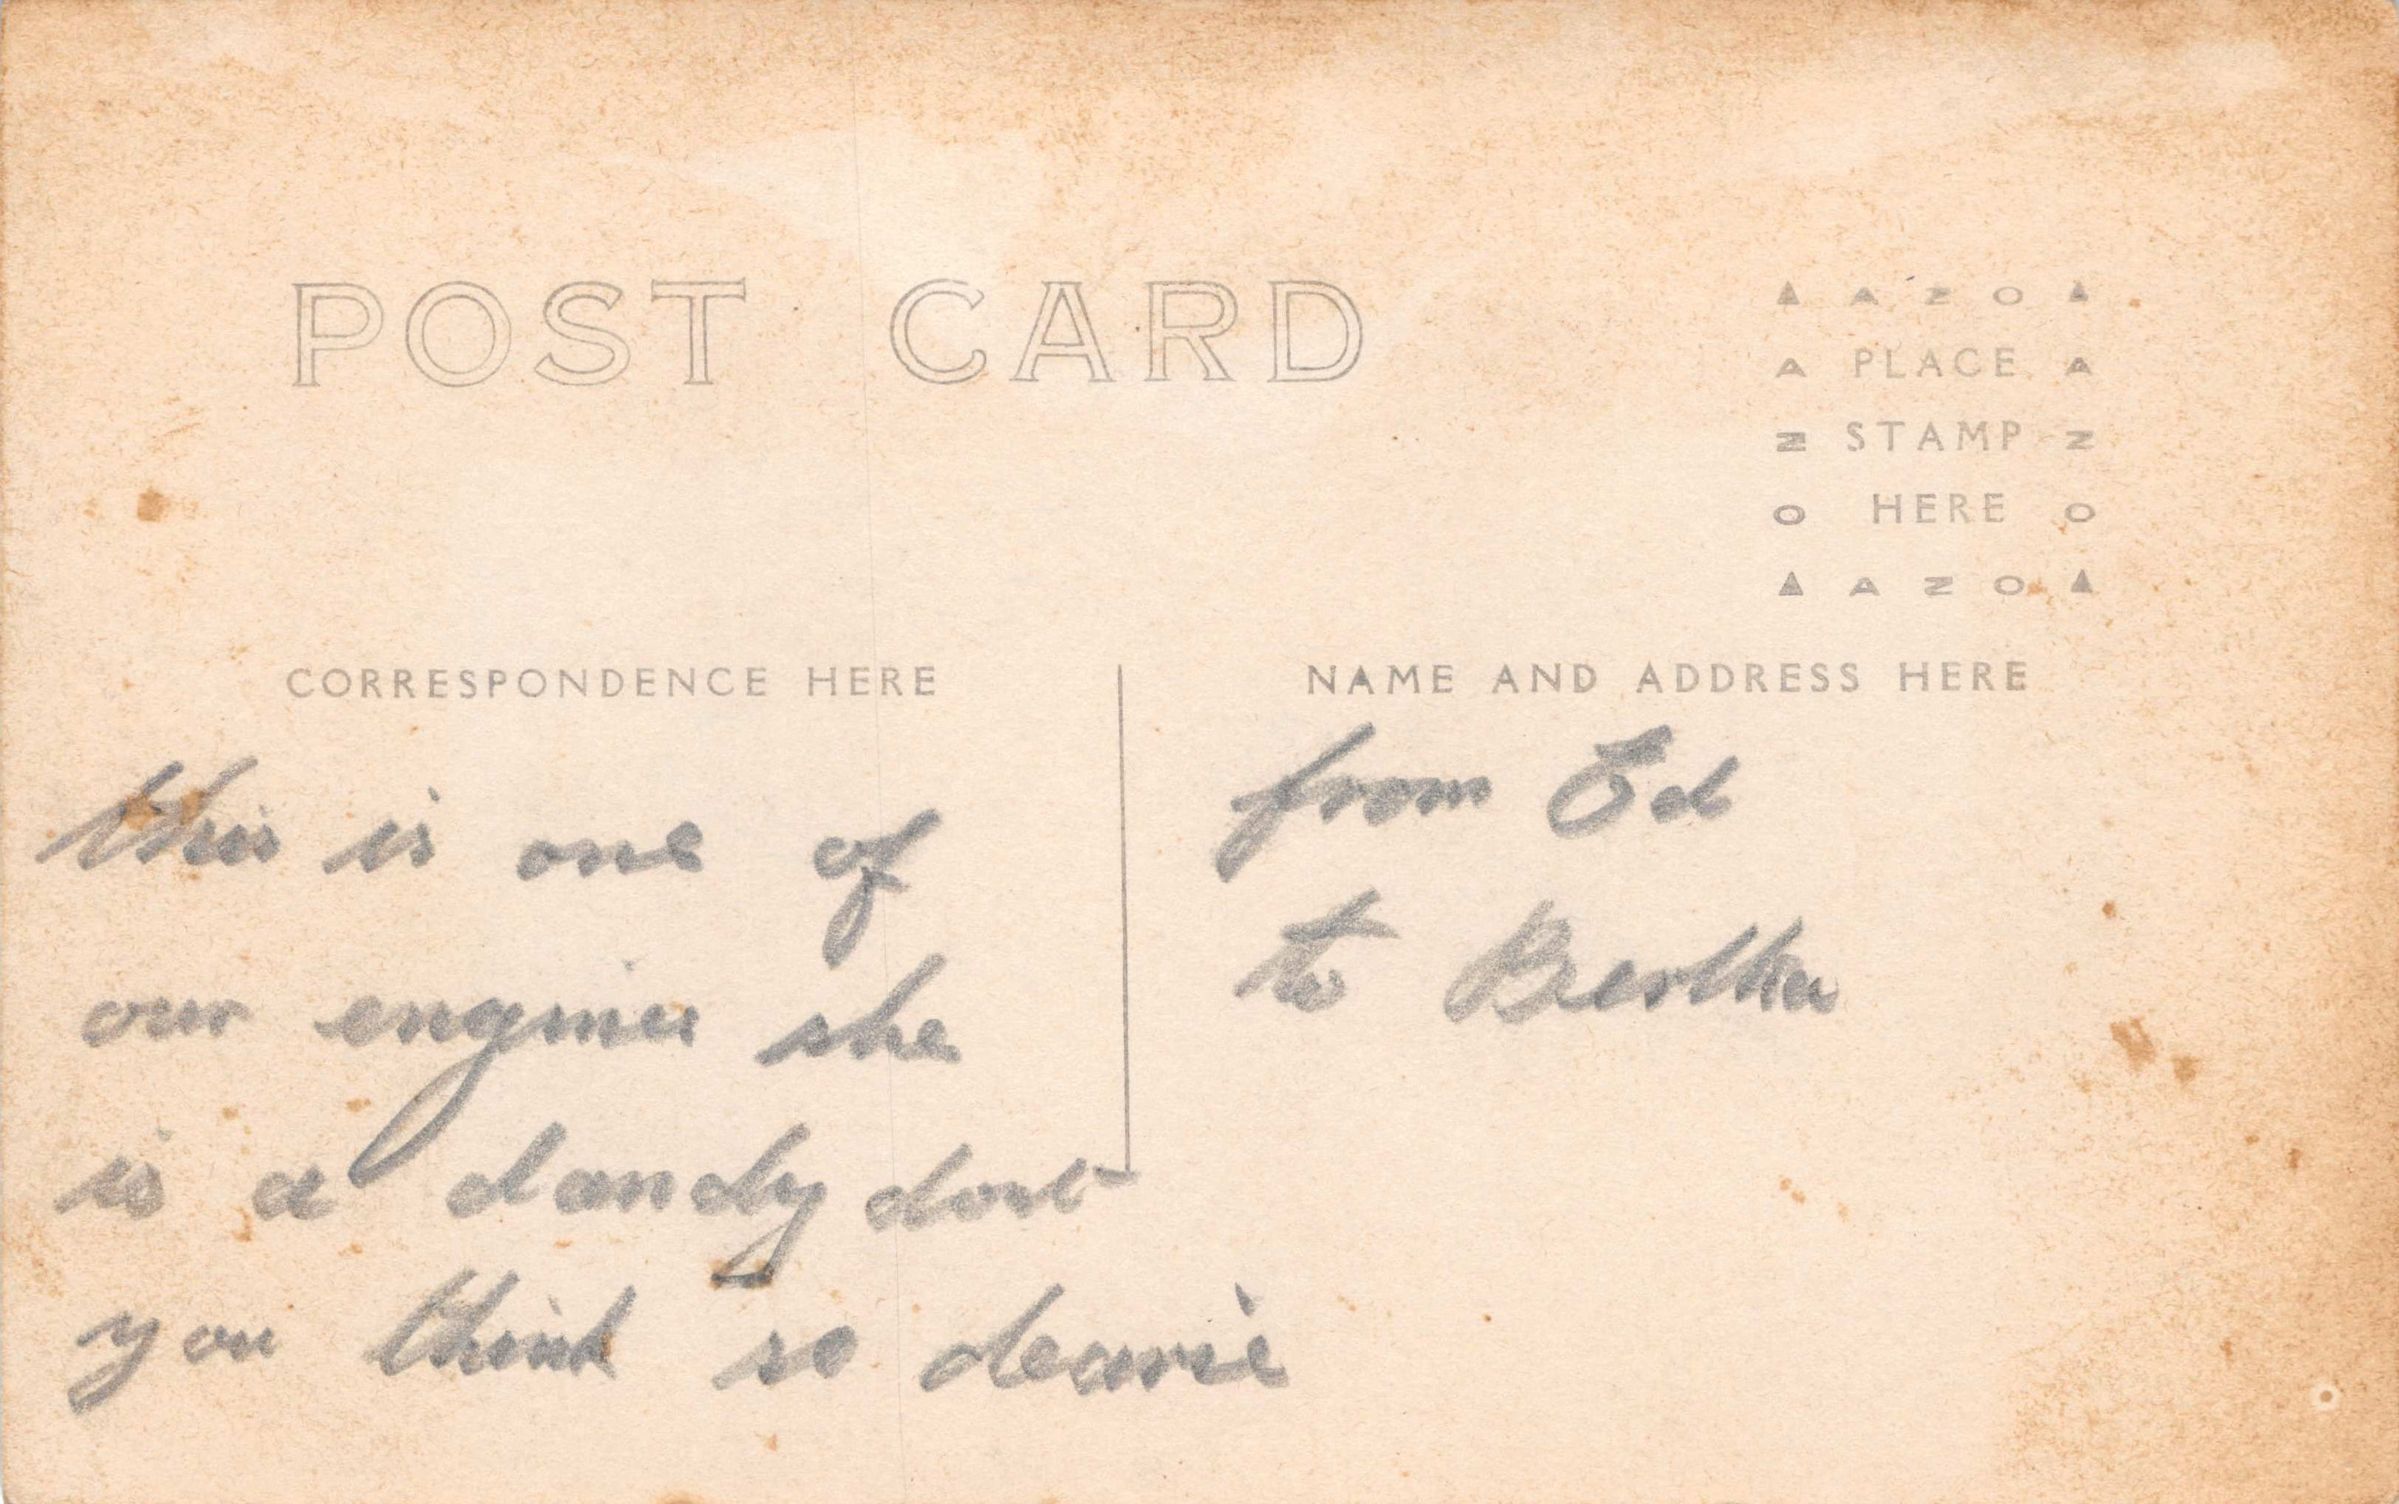 POST CARD
▲ A Z O ▲
A PLACE A
Z STAMP Z
O HERE O
▲ A Z O ▲
CORRESPONDENCE HERE
this is one of
our engines she
is a dandy dont
you think so dearie
NAME AND ADDRESS HERE
from Ed
to Bertha